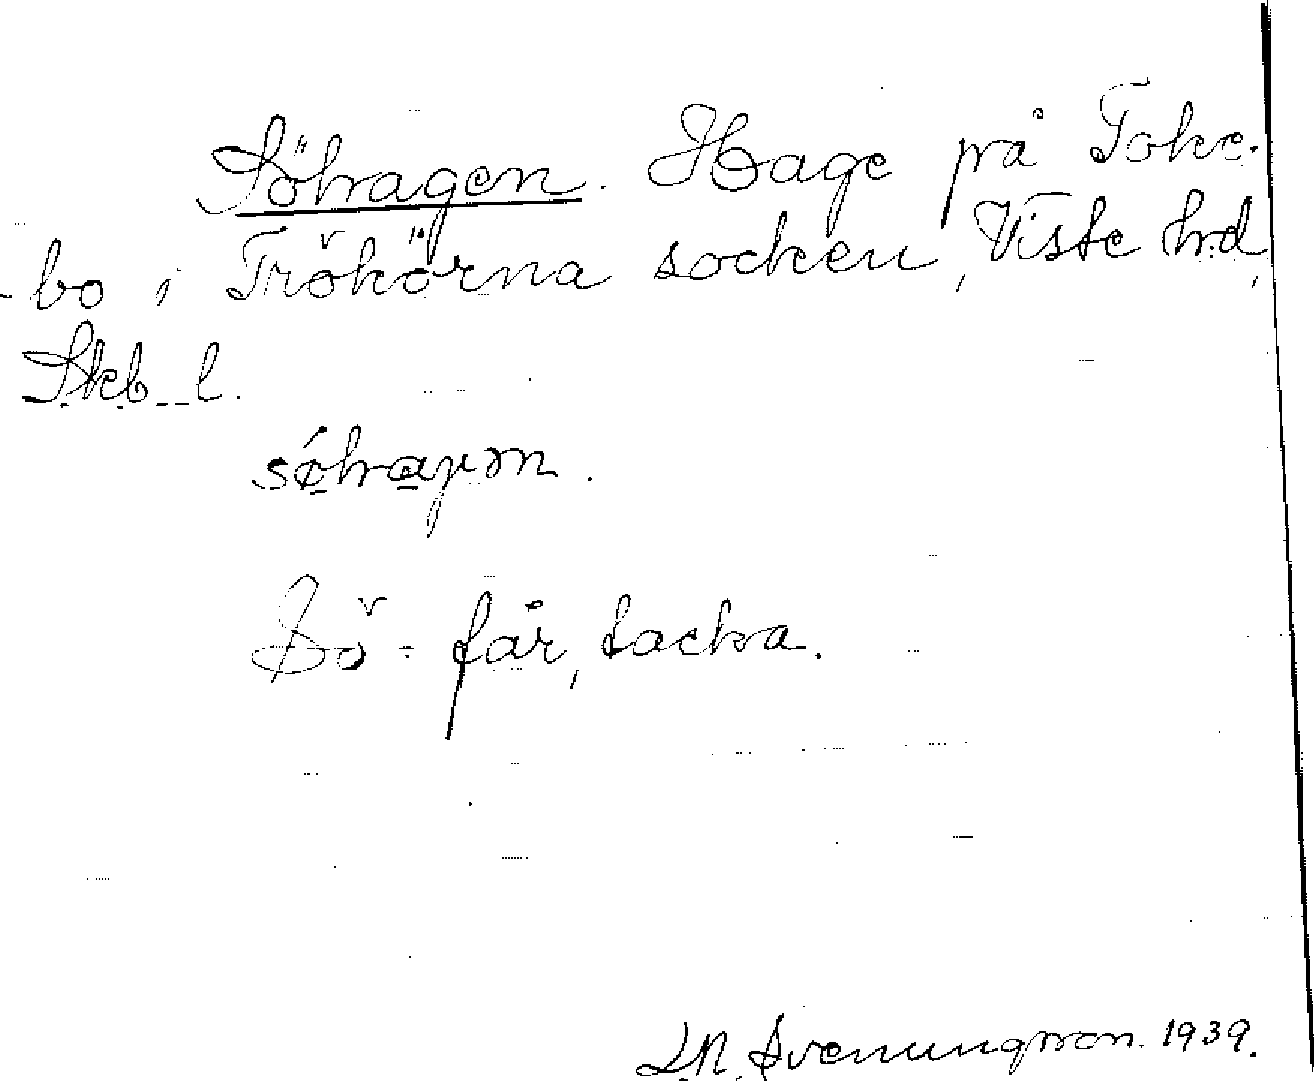 Söhagen. Hage på Toke-
-bo i Trökörna socken, Viste hd,
Skb. l.
sǿhaɣən.
Sö = får, tacka.
L.N. Svenungsson. 1939.